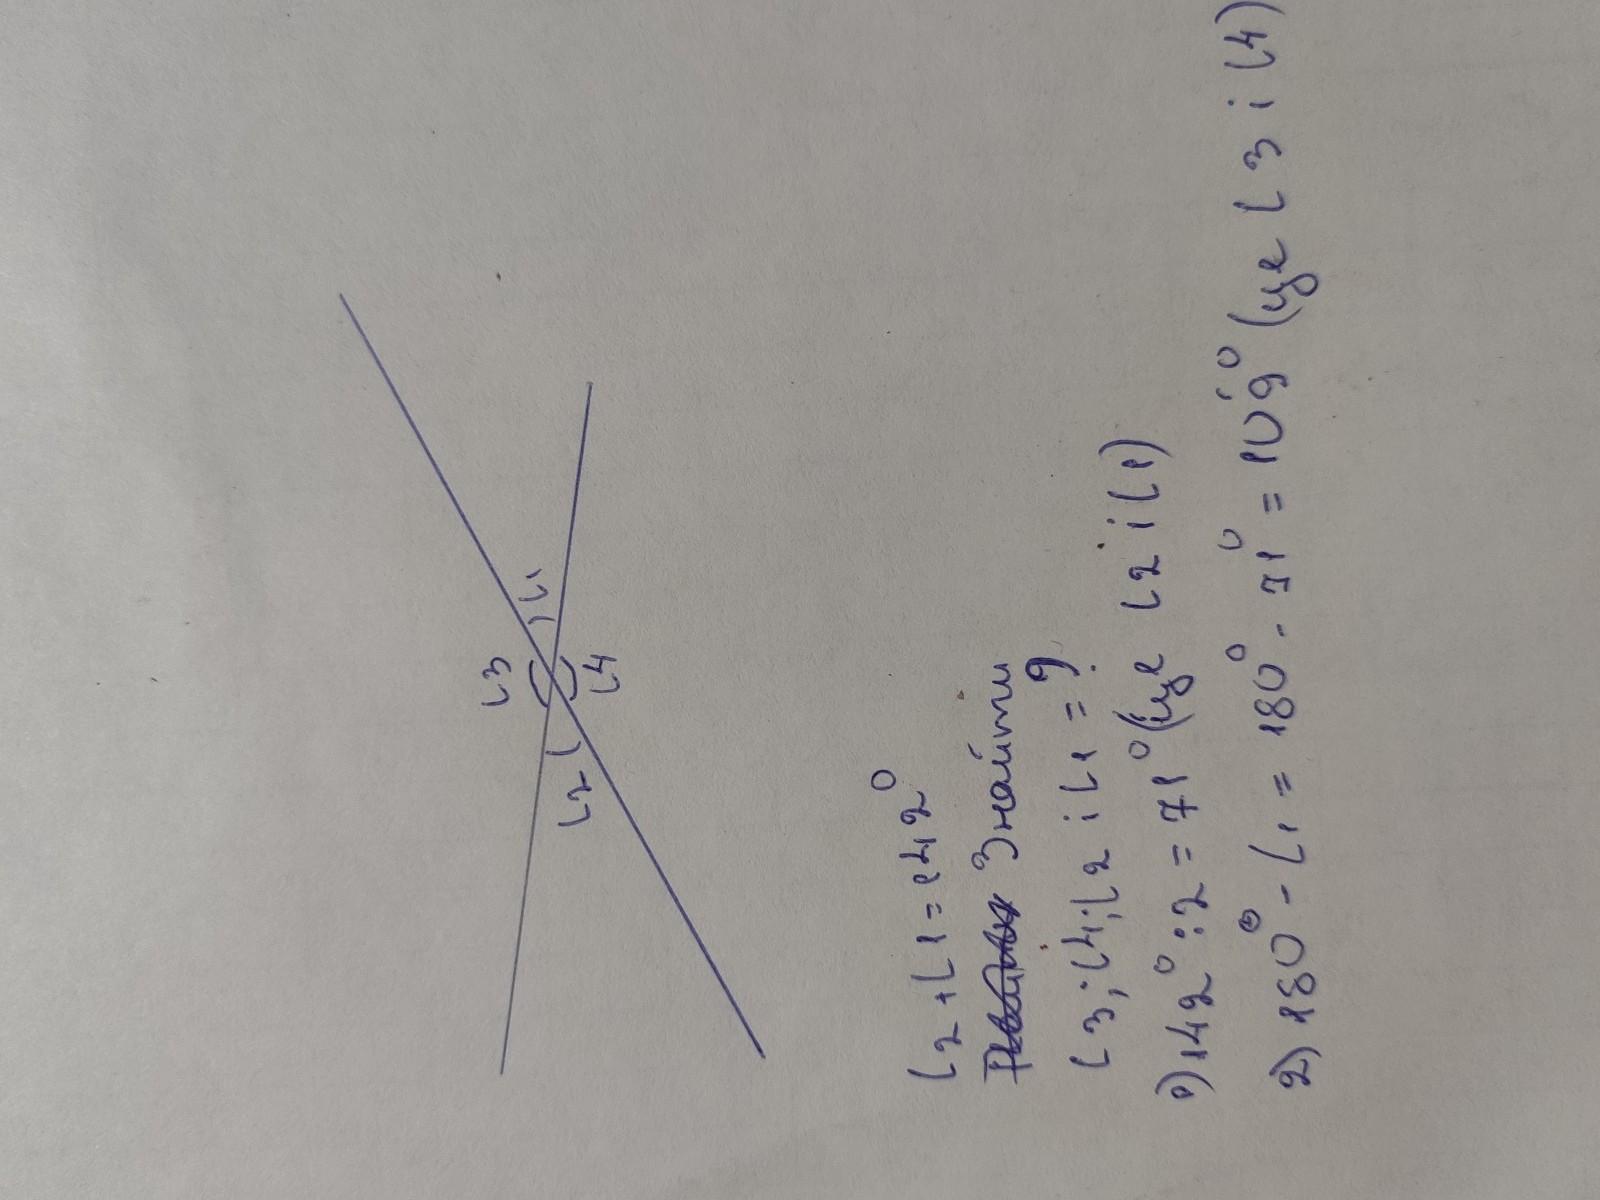 ∠3
∠1
∠2
∠4
∠2 + ∠1 = 142°
Знайти
∠3; ∠4; ∠2 і ∠1 = ?
1) 142° : 2 = 71° (це ∠2 і ∠1)
2) 180° - ∠1 = 180° - 71° = 109° (це ∠3 і ∠4)